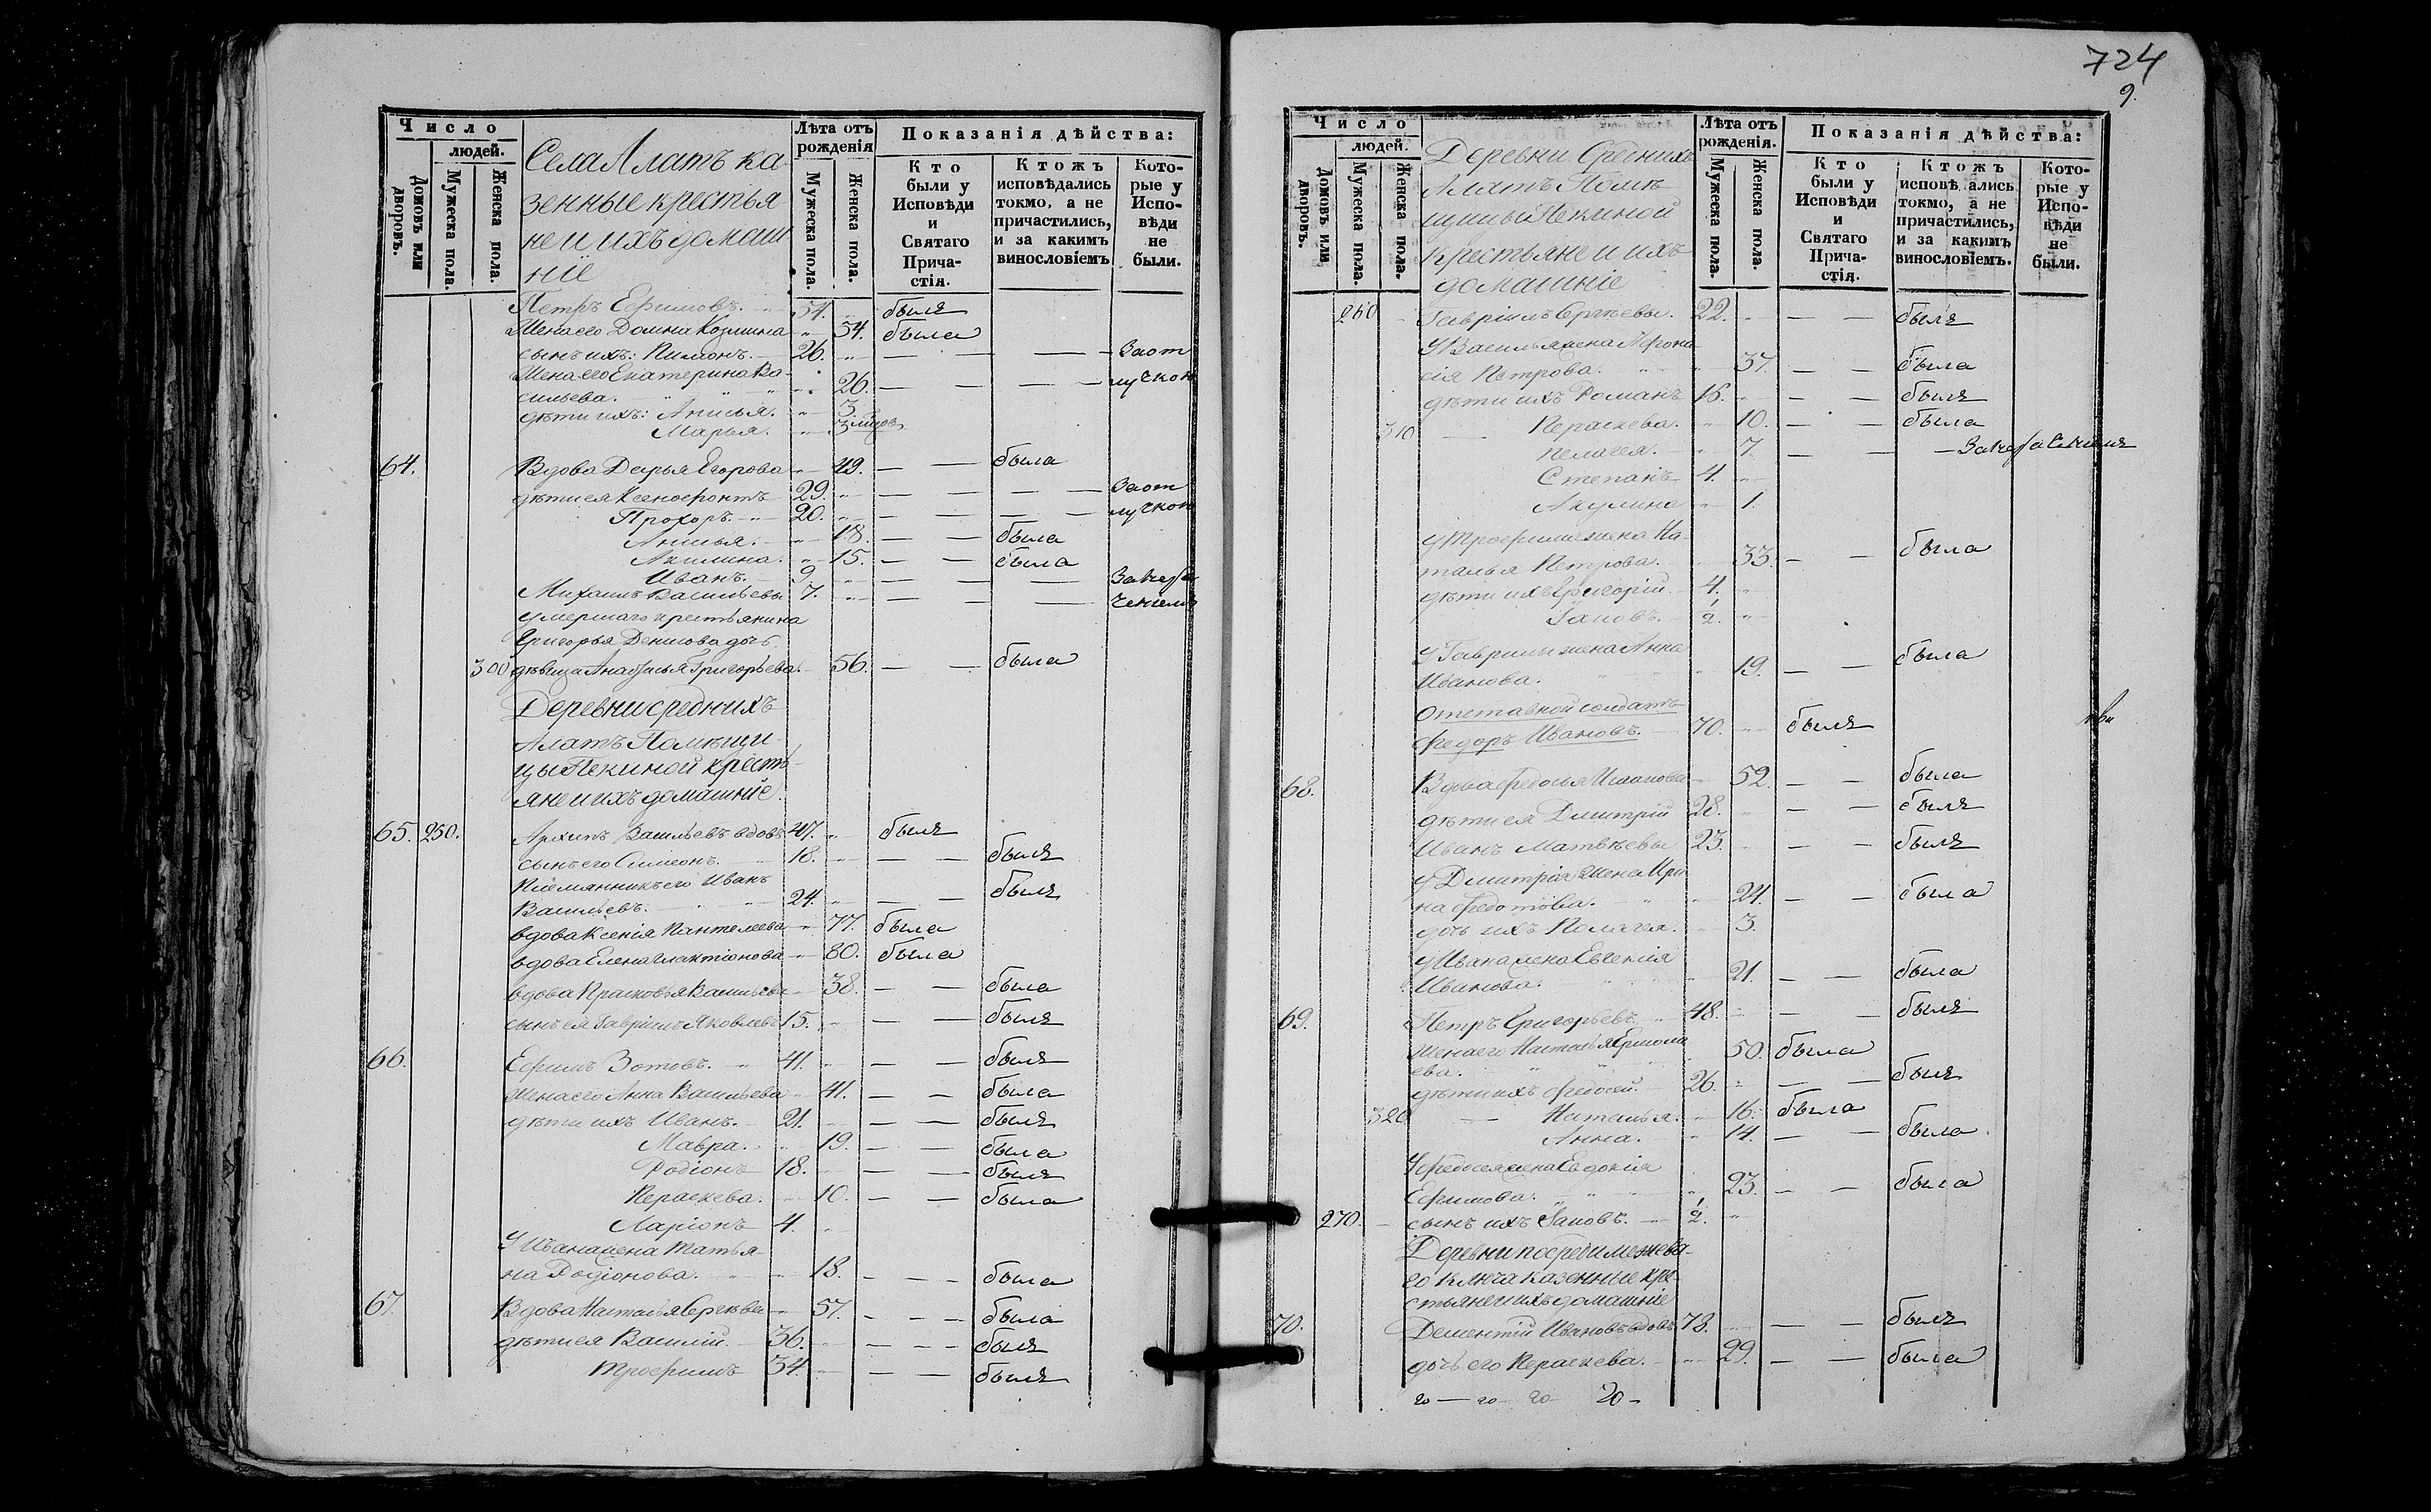 Число
людей.
Домовъ или дворовъ.
Мужеска пола.
Женска пола.
Села Алатъ ка-
зенные крестья
не и ихъ домаш
ніе
Лѣта отъ рожденія
Мужеска пола.
Женска пола.
Показанія дѣйства:
Кто были у Исповѣди и Святаго Прича-стія.
Ктожъ исповѣдались токмо, а не причастились, и за какимъ винословіемъ
Кото-рые у Испо-вѣди не были.
Петръ Ефимовъ. 54. былъ
Жена его Домна Козмина 54. была
сынъ ихъ: Пименъ. 26. — — — За от
Жена его Екатерина Ва-
сильева. 26. — — — лучкою
дѣти ихъ: Анисья. 3.
Марья. 3
64. Вдова Дарья Егорова 49. — — была
дѣти ея Ксенофонтъ 29. — — — — За от
Прохоръ. 20. — — — — лучкою
Анисья. 18. — — была
Акилина. 15. — — была
Иванъ. 9. — — —
Михаилъ Васильевы 7. — — —
умершаго крестьянина
Григорья Денисова дочь
300 дѣвица Анастасья Григорьева 56. — — была
Деревни среднихъ
Алатъ Помѣщи-
цы Пекиной кресть-
яне и ихъ домашніе.
65. 250. Архипъ Васильевъ вдовъ 47. былъ
сынъ его Симеонъ. 18. — — былъ
Племянникъ его Иванъ
Васильевъ. 24. — — былъ
вдова Ксенія Пантелеева 77. была
вдова Елена Галактіонова 80. была
вдова Прасковья Васильева 38. — — была
сынъ ея Гавріилъ Яковлевъ 15. — — былъ
66. Ефимъ Зотовъ. 41. — — былъ
Жена его Анна Васильева 41. — — была
дѣти ихъ Иванъ. 21. — — былъ
Мавра. 19. — — была
Родіонъ 18. — — былъ
Параскева. 10. — — была
Ларіонъ 4.
У Ивана жена Татья-
на Родіонова. 18. — — — была
67. Вдова Наталья Сергѣева 57. — — — была
дѣти ея Василій. 36. — — — былъ
Трофимъ 34. — — былъ
724
9.
Число
людей.
Домовъ или дворовъ.
Мужеска пола.
Женска пола.
Деревни Среднихъ
Алатъ Помѣ
щицы Пекиной
крестьяне и ихъ
домашніе
Лѣта отъ рожденія.
Мужеска пола.
Женска пола.
Показанія дѣйства:
Кто были у Исповѣди и Святаго Прича-стія.
Ктожъ исповѣ ались токмо, а не причастились, и за какимъ винословіемъ.
Кото-рые у Испо-вѣди не были.
260 Гавріилъ Сергѣевы. 22. — — былъ
У Василья жена Афона
сія Петрова. 37. — — была
дѣти ихъ Романъ 16. — — былъ
310 — Параскева. 10. — — была
Пелагея. 7. — — —
Степанъ 4.
Акулина 1.
У Трофима жена На-
талья Петрова. 33. — — была
дѣти ихъ Григорій. 4.
Іаковъ. 1/2.
У Гавриилы жена Анна
Иванова. 19. — — была
Отставной солдатъ
Федоръ Ивановъ. 70. былъ
68. Вдова Федосья 52. — — была
дѣти ея Дмитрій 28. — — былъ
Иванъ Матвѣевы 23. — — былъ
У Дмитрія жена Ири
на Федотова. 24. — — была
дочь ихъ Пелагея. 3.
У Ивана жена Евгенія
Иванова. 21. — — была
69. Петръ Григорьевъ. 48. — — былъ
Жена его Наталья Ермола
ева. 50. была
дѣти ихъ Федосей. 26. — — былъ
320 — Наталья. 16. была
Анна. 14. — — была
У Федосея жена Евдокія
Ефимова. 23. — — была
270. — сынъ ихъ Іаковъ. 1/2.
Деревни посреди межева-
го ключа казенные кре-
стьяне и ихъ домашніе
70. Дементій Ивановъ вдовъ 78. — — былъ
дочь его Параскева. 29. — — была
20 — 20 — 20 — 20 —